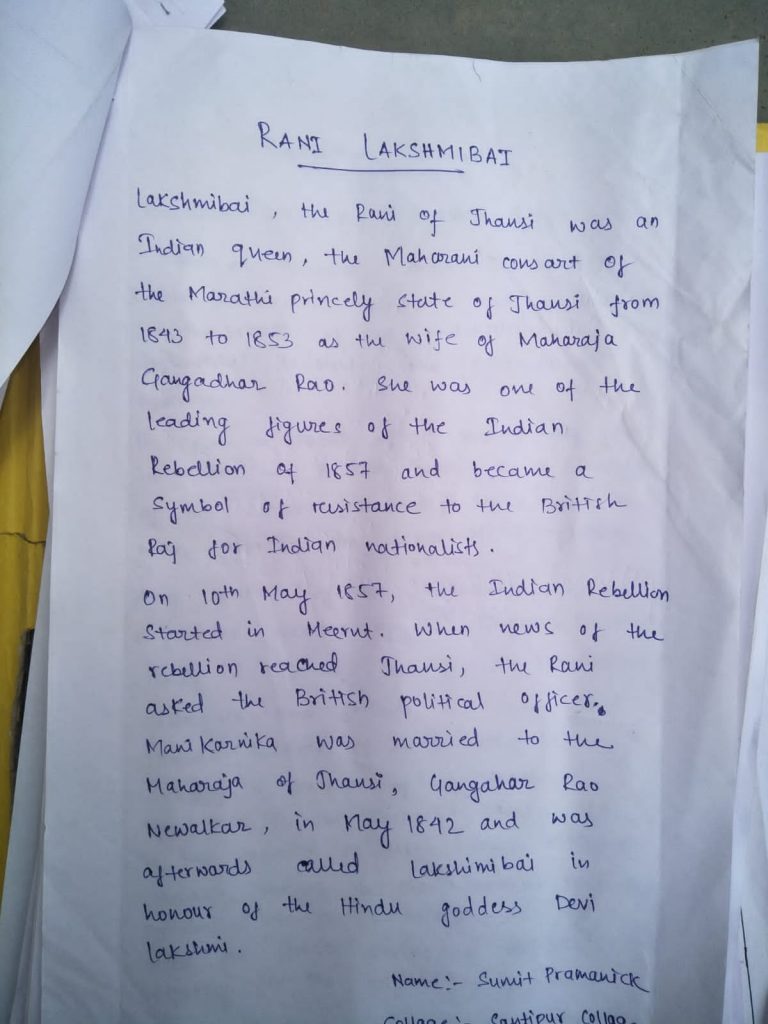 RANI LAKSHMIBAI
Lakshmibai, the Rani of Jhansi was an
Indian queen, the Maharani consart of
the Marathi princely state of Jhansi from
1843 to 1853 as the wife of Maharaja
Gangadhar Rao. She was one of the
leading figures of the Indian
Rebellion of 1857 and became a
symbol of resistance to the British
Raj for Indian nationalists.
On 10th May 1857, the Indian Rebellion
started in Meerut. When news of the
rebellion reached Jhansi, the Rani
asked the British political officer.
Manikarnika was married to the
Maharaja of Jhansi, Gangahar Rao
Newalkar, in May 1842 and was
afterwards called Lakshimibai in
honour of the Hindu goddess Devi
lakshmi.
Name:- Sumit Pramanick
College:- Santipur Colleg